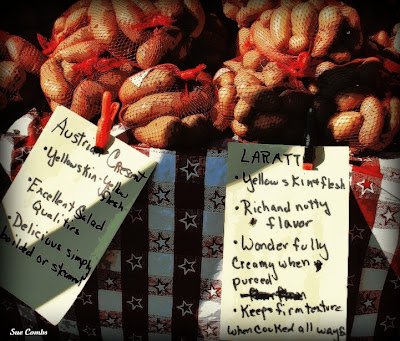 Austrian Cresent
• Yellow skin - yellow
flesh
• Excellent Salad
Qualities
• Delicious simply
boiled or steamed
LARATT
• Yellow skin & flesh
• Rich and nutty
flavor
• Wonderfully
Creamy when
pureed
• Keeps firm texture
when cooked all ways
Sue Combs